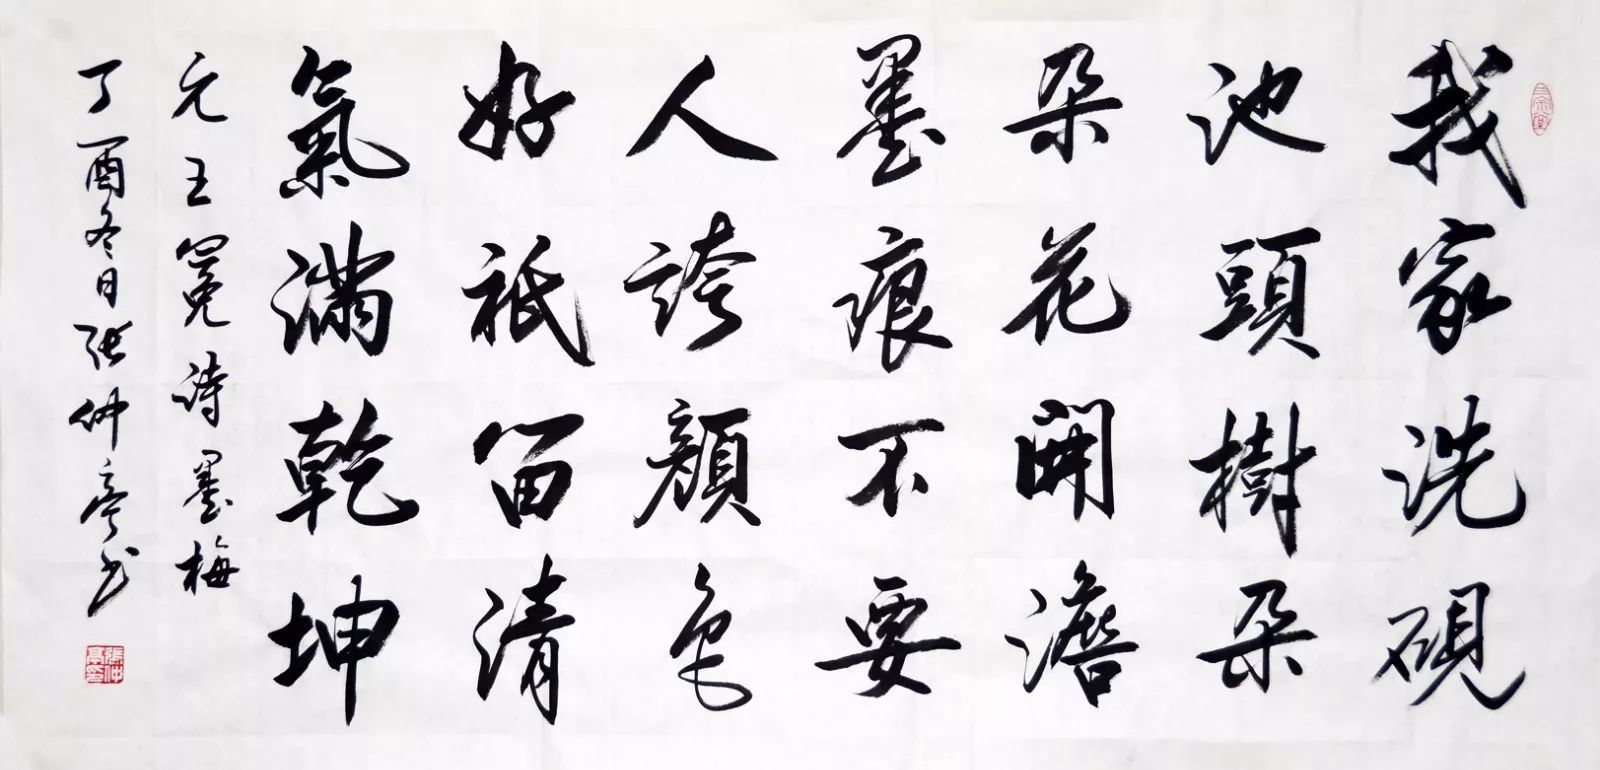 我家洗硯
池頭樹朵
朵花開澹
墨痕不要
人誇顏色
好祇留清
氣滿乾坤
元王冕诗墨梅
丁酉冬日张仲亭书
張仲亭印